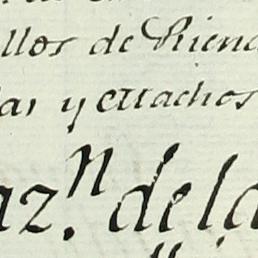 llos de Riend
las y Machos
az.n de la